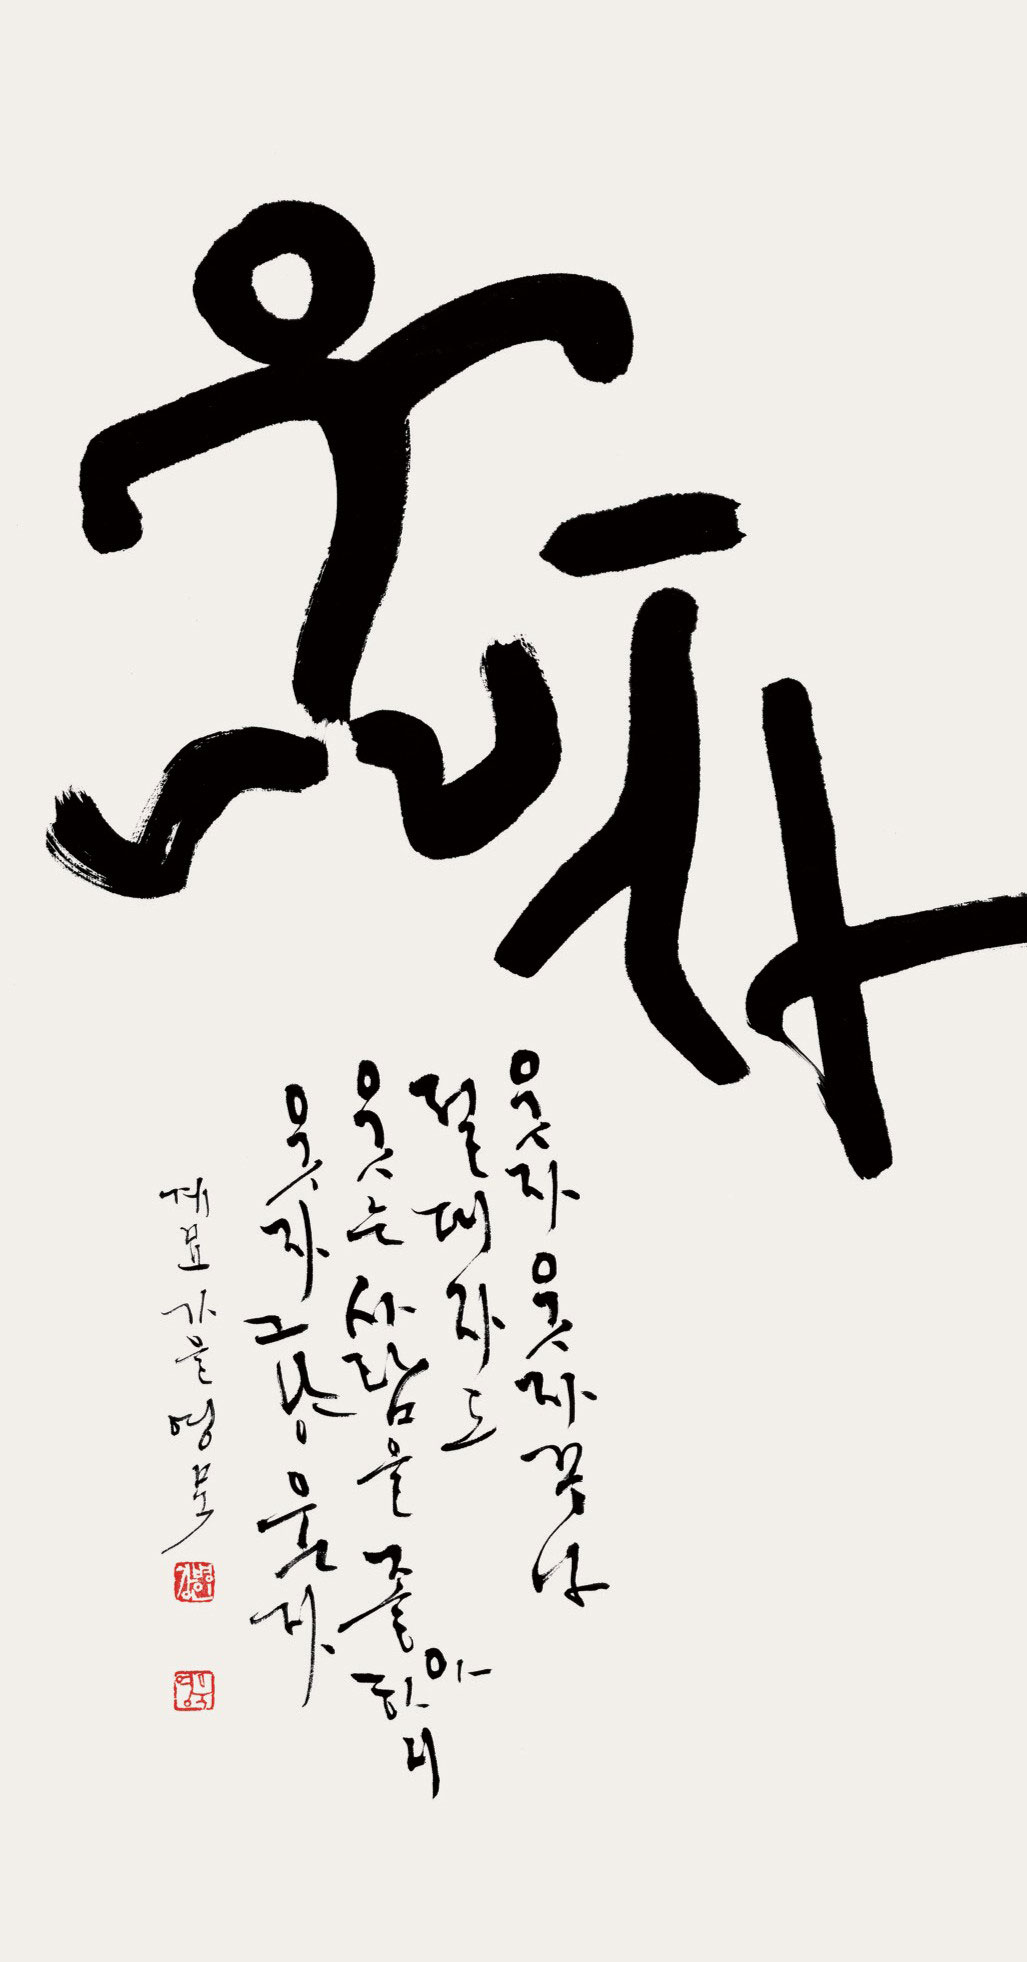 웃자
웃자 웃자꾸나
절대자도
웃는 사람을 좋아하니
웃자 그냥 웃자
계묘 가을 영묵
강병인
영묵